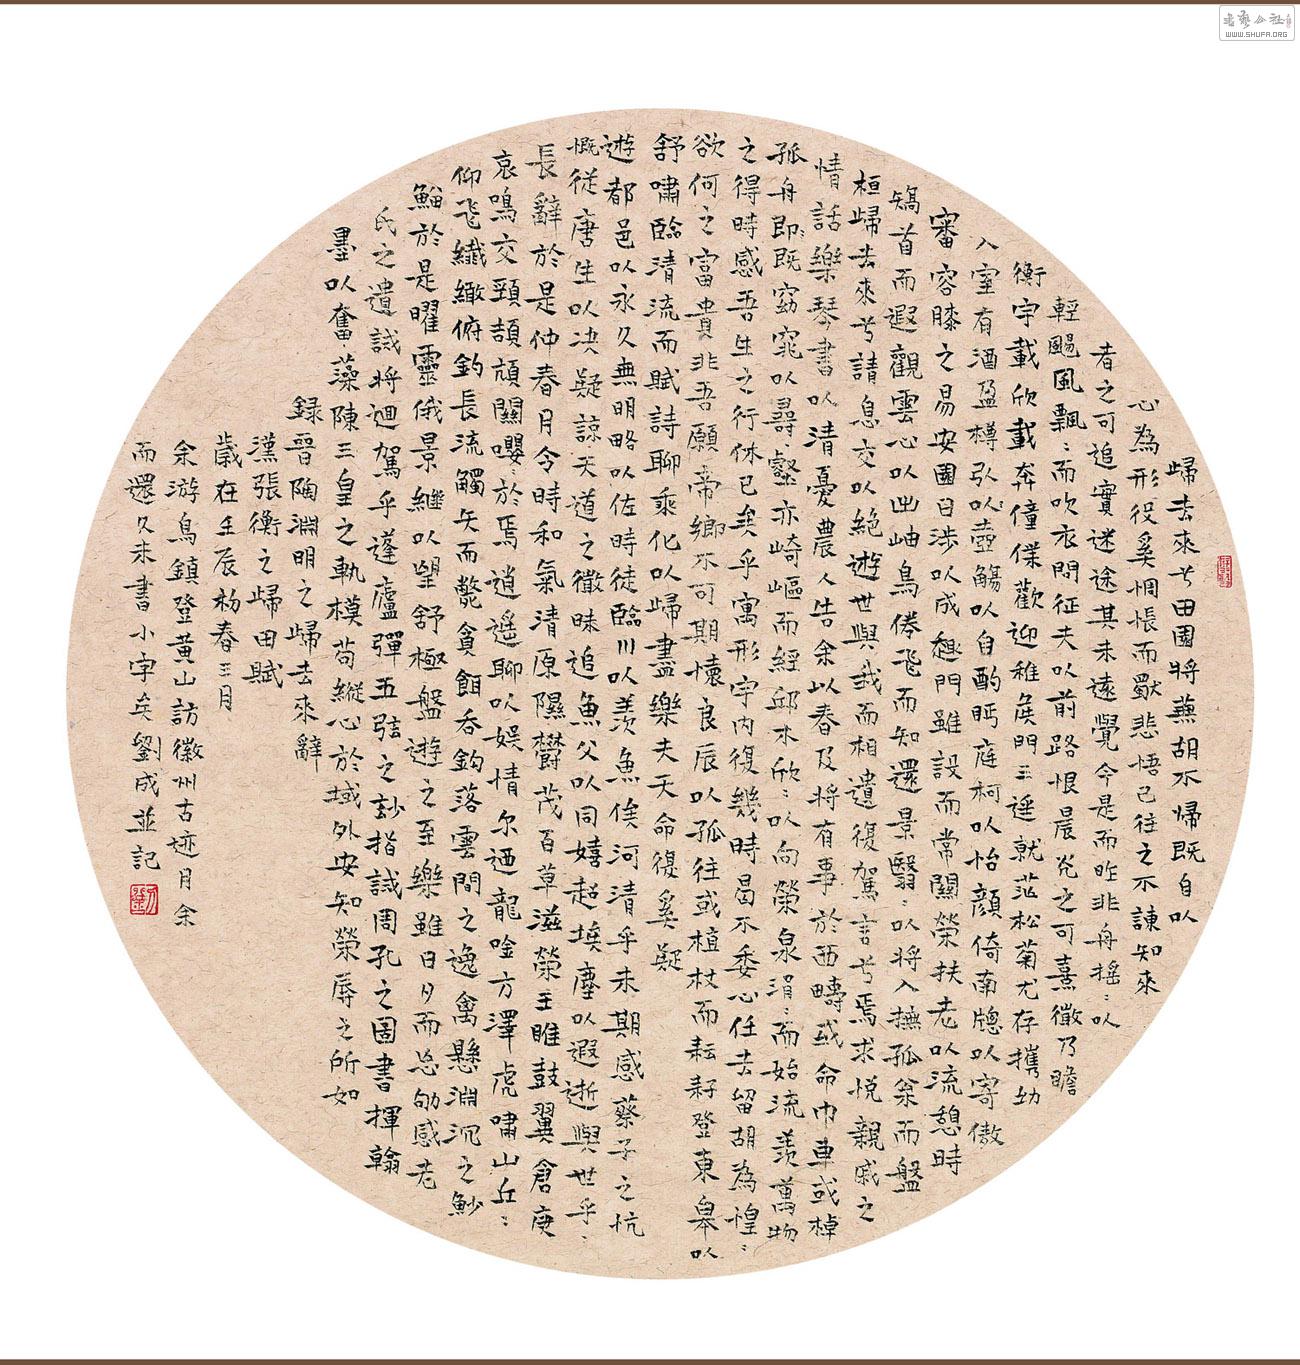 歸去來兮田園將蕪胡不歸既自以
心為形役奚惆悵而獨悲悟已往之不諫知來
者之可追實迷途其未遠覺今是而昨非舟搖﹦以
輕颺風飄﹦而吹衣問征夫以前路恨晨光之可熹微乃瞻
衡宇載欣載奔僮僕歡迎稚矦門三逕就荒松菊尤存攜幼
入室有酒盈樽引以壺觴以自酌眄庭柯以怡顏倚南牕以寄傲
審容膝之易安園日涉以成趣門雖設而常關榮扶老以流憩時
矯首而遐觀雲心以出岫鳥倦飛而知還景翳﹦以將入撫孤榮而盤
桓歸去來兮請息交以絕遊世與我而相遺復駕言兮焉求悅親戚之
情話樂琴書以清憂農人告余以春及將有事於西疇或命巾車或棹
孤舟即﹦既窈窕以尋壑亦崎嶇而經邱木欣﹦以向榮泉涓﹦而始流羨萬物
之得時感吾生之行休已矣乎寓形宇內復幾時曷不委心任去留胡為惶﹦
欲何之富貴非吾願帝鄉不可期懷良辰以孤往或植杖而耘耔登東皋以
舒嘯臨清流而賦詩聊乘化以歸盡樂夫天命復奚疑
遊都邑以永久無明略以佐時徒臨川以羨魚俟河清乎未期感蔡子之忼
慨從唐生以決疑諒天道之微昧追魚父以同嬉超埃塵以遐逝與世乎
長辭於是仲春月令時和氣清原隰欝茂百草滋榮王雎鼓翼倉庚
哀鳴交頸頡頏關嚶﹦於焉逍遙聊以娛情尔迺龍唫方澤虎嘯山丘﹦
仰飛纖繳俯釣長流觸矢而斃貪餌吞鈎落雲間之逸禽懸淵沉之魦
鰡於是曜靈俄景繼以望舒極盤遊之至樂雖日夕而忘劬感老
氏之遺誡將迴駕乎蓬廬彈五弦之玅指誠周孔之圖書揮翰
墨以奮藻陳三皇之軌模苟縱心於域外安知榮辱之所如
錄晉陶淵明之歸去來辭
漢張衡之歸田賦
歲在壬辰初春三月
余游烏鎮登黃山訪徽州古迹月余
而還久未書小字矣劉成並記
書藝公社
WWW.SHUFA.ORG